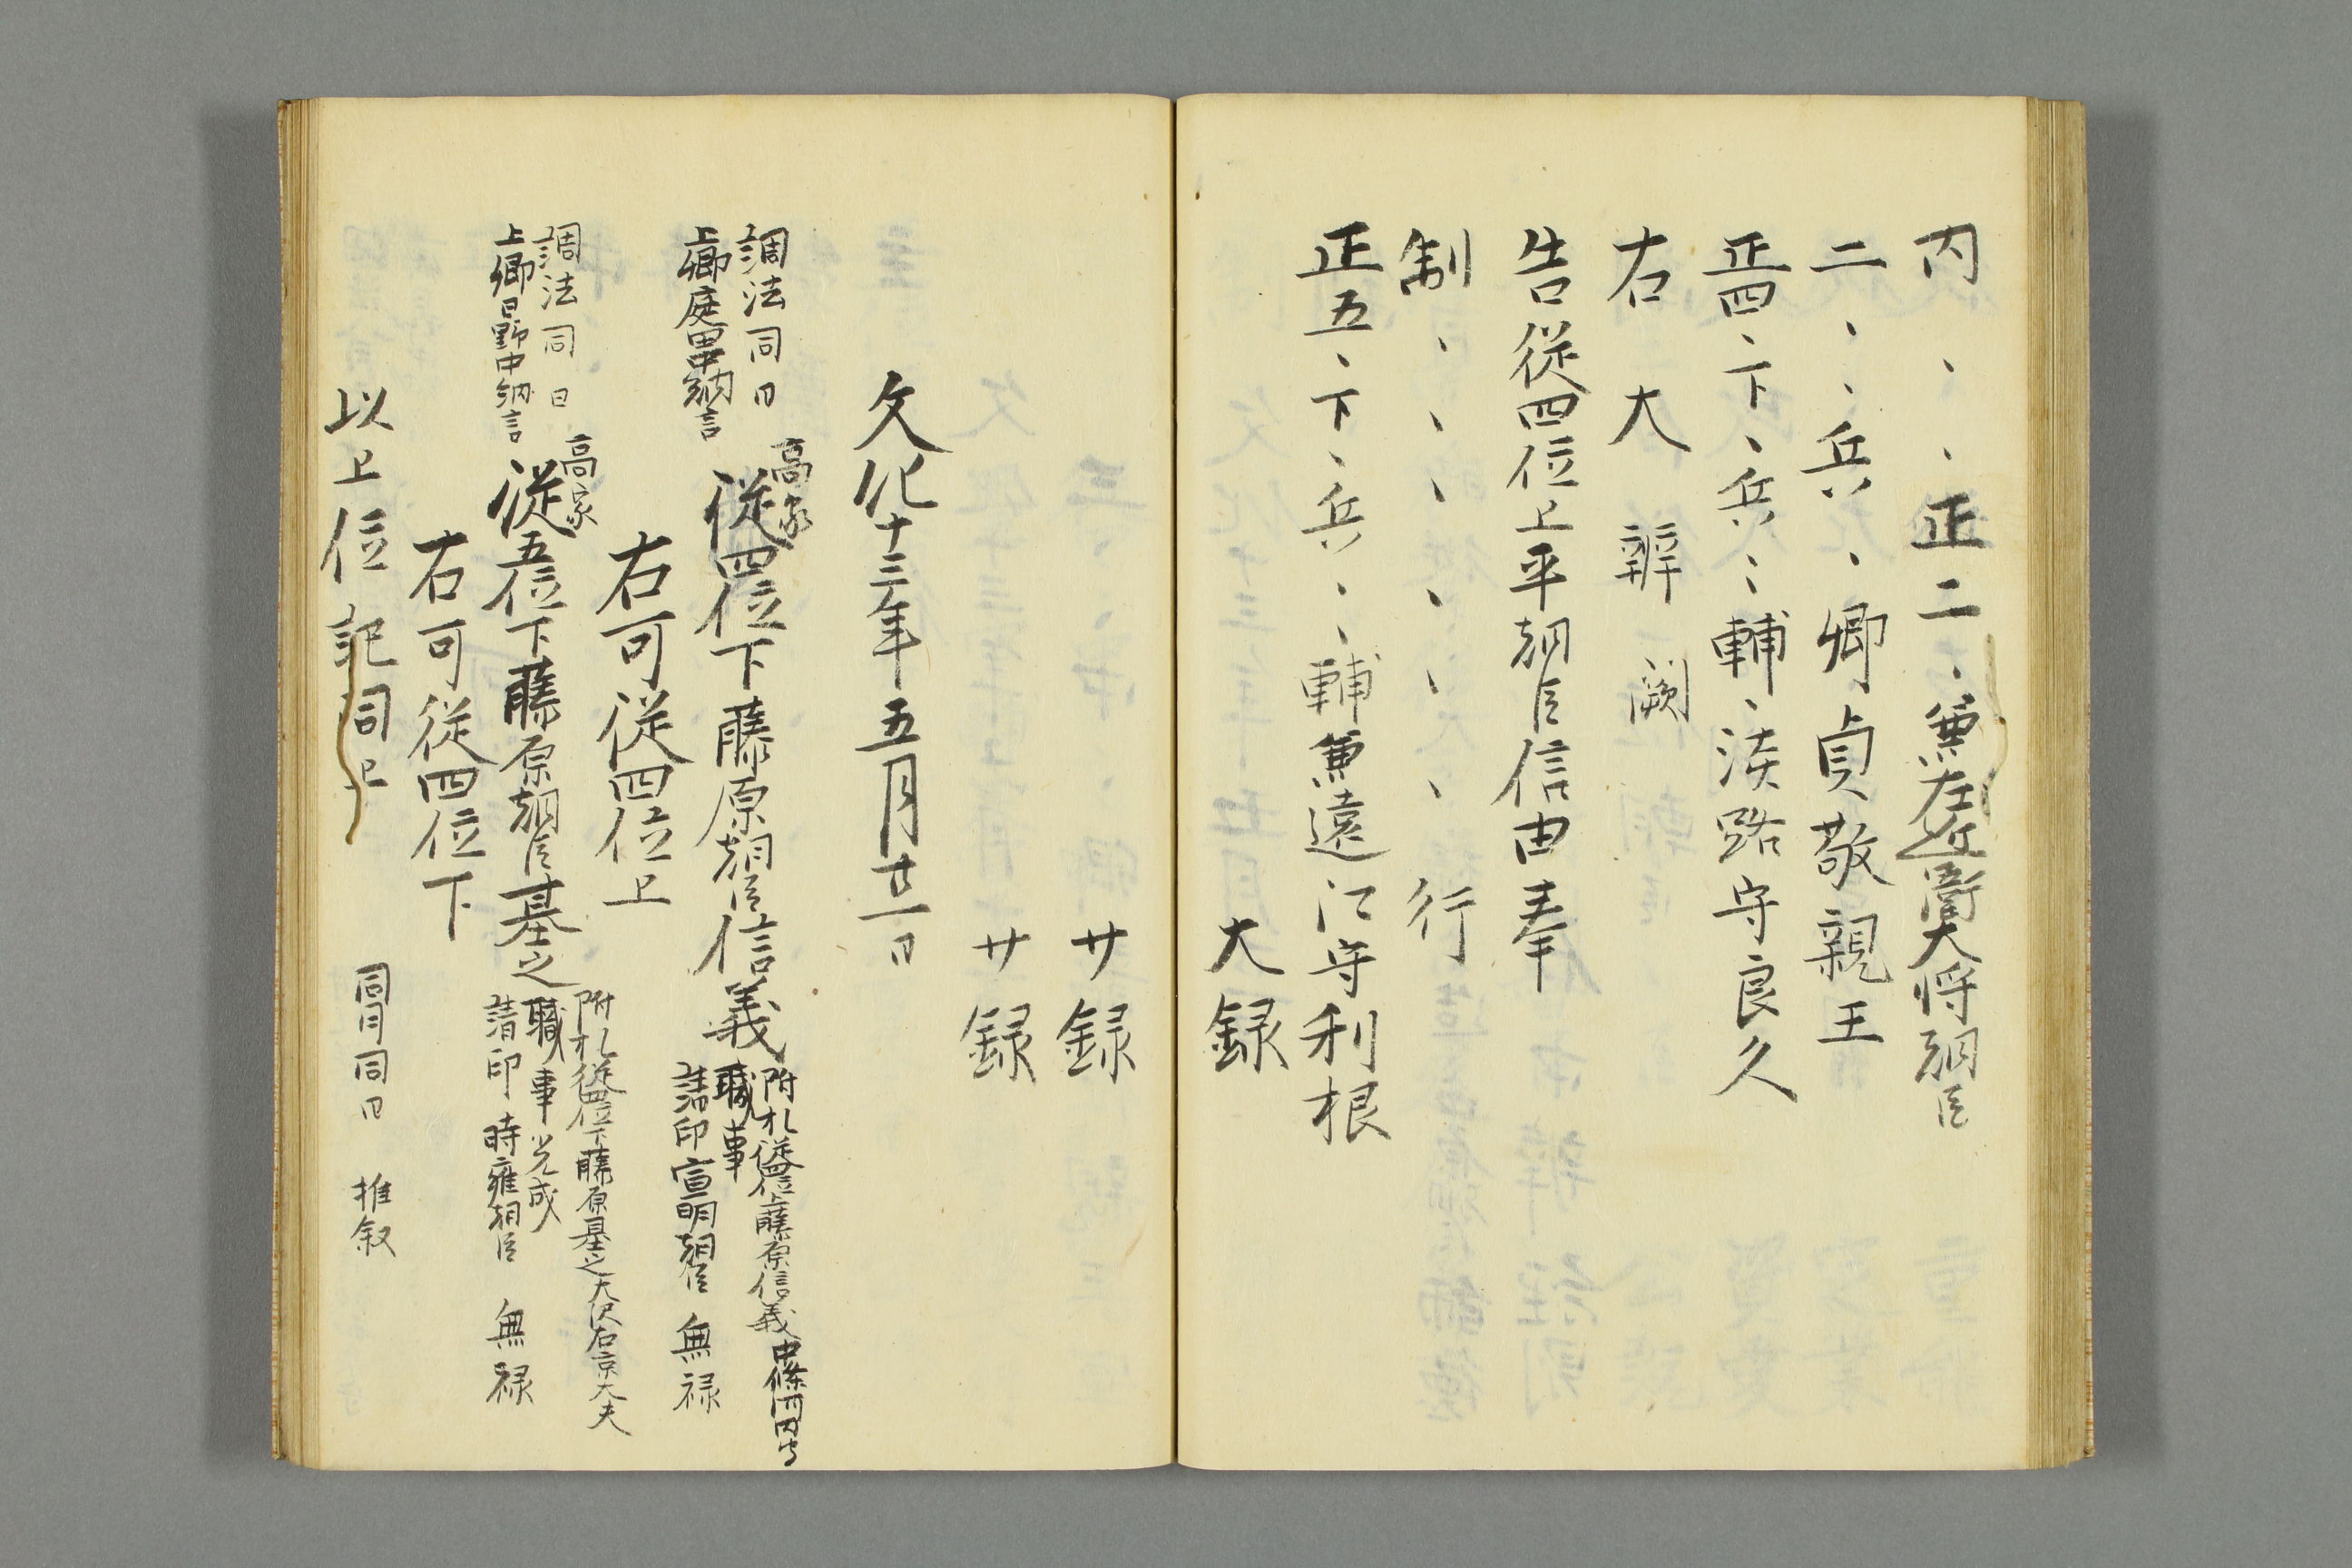 内、、正二、兼左近衛大将朝臣
二、、兵、卿貞敬親王
正四、下、兵、、輔、淡路守良久
右大辨 闕
告従四位上平朝臣信由奉
制、、、、、、行
正五、下、兵、、輔兼遠江守利根
大録
サ録
サ録
文化十三年五月廿一日
調法同日
上卿庭田中納言
高家
従四位下藤原朝臣信義
附札従四位上藤原信義中條河内守
職事
請印宣明朝臣 無禄
右可従四位上
調法同日
上卿日野中納言
高家
従五位下藤原朝臣基之
附札従四位下藤原基之大沢右京大夫
職事光成
請印時雍朝臣 無禄
右可従四位下
以上位記同上 同月同日 推叙